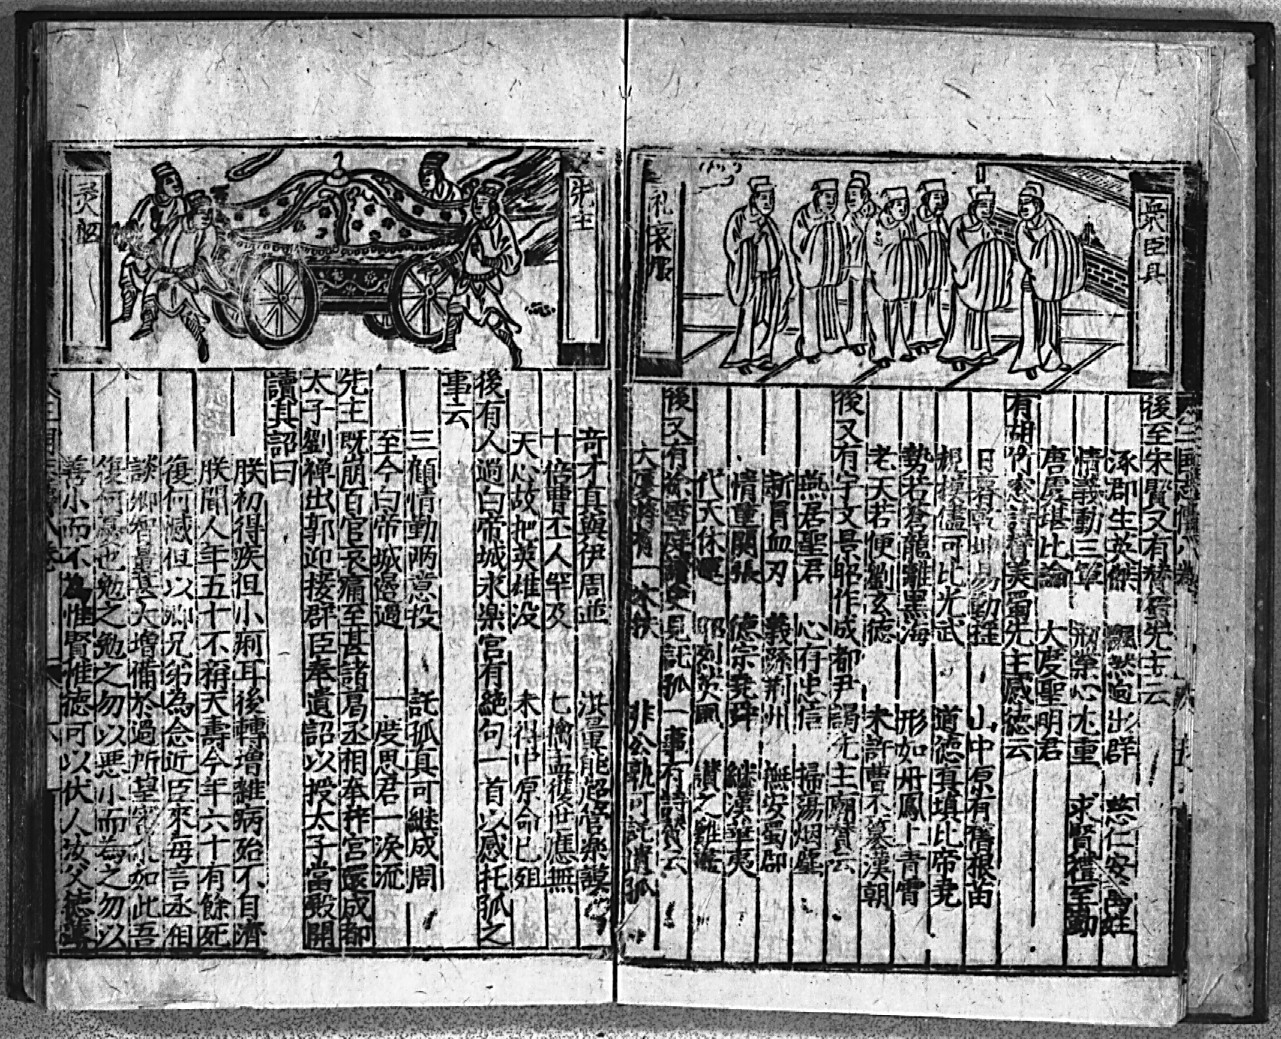 吳臣具
礼衷服
後至宋賢又有贊先主云
涿郡生英傑 飄然迥出群 慈仁安萬姓
情義動三軍 剏業心尤重 求賢禮至勤
唐虞堪比論 大度聖明君
有胡 詩贊美蜀先主感德云
日 乾坤易動搖 山中原有舊根苗
規模儘可比光武 道德真堪比帝堯
勢若蒼龍離黑海 形如丹鳳上青霄
老天若便劉玄德 未許曹丕篡漢朝
後又有宇文景 作成都尹謁先主廟贊云
燕居聖君 心有忠信 掃蕩烟塵
斬 血刃 義 荊州 撫安蜀郡
情重關張 德宗堯舜 繼漢華夷
代天休 讃之難盡
後又有徐雪 讀史見託孤一事有詩贊云
大廈將 一木扶 非公孰可託遺孤
先主
灵柩
奇才真與伊周並 洪量能超管樂謨
十倍曹丕人罕及 七擒孟獲世應無
天心故把英雄没 未得中原命已殂
後有人過白帝城永樂宮有絶句一首以感托孤之
事云
三顧情動两意投 託孤真可継成周
至今白帝城邊過 一度思君一淚流
先主既崩百官哀痛至甚諸葛丞相奉梓宮還成都
太子劉禅出郭迎接群臣奉遺詔以授太子當殿開
讀其詔曰
朕初得疾但小痢耳後轉增雜病殆不自濟
朕聞人年五十不稱夭壽今年六十有餘死
復何憾但以卿兄弟為念近臣來毎言丞相
談卿智量甚大增備於過所望 如此吾
復何憂也勉之勉之勿以悪小而為之勿以
善小而不為惟賢惟德可以伏人汝父德薄